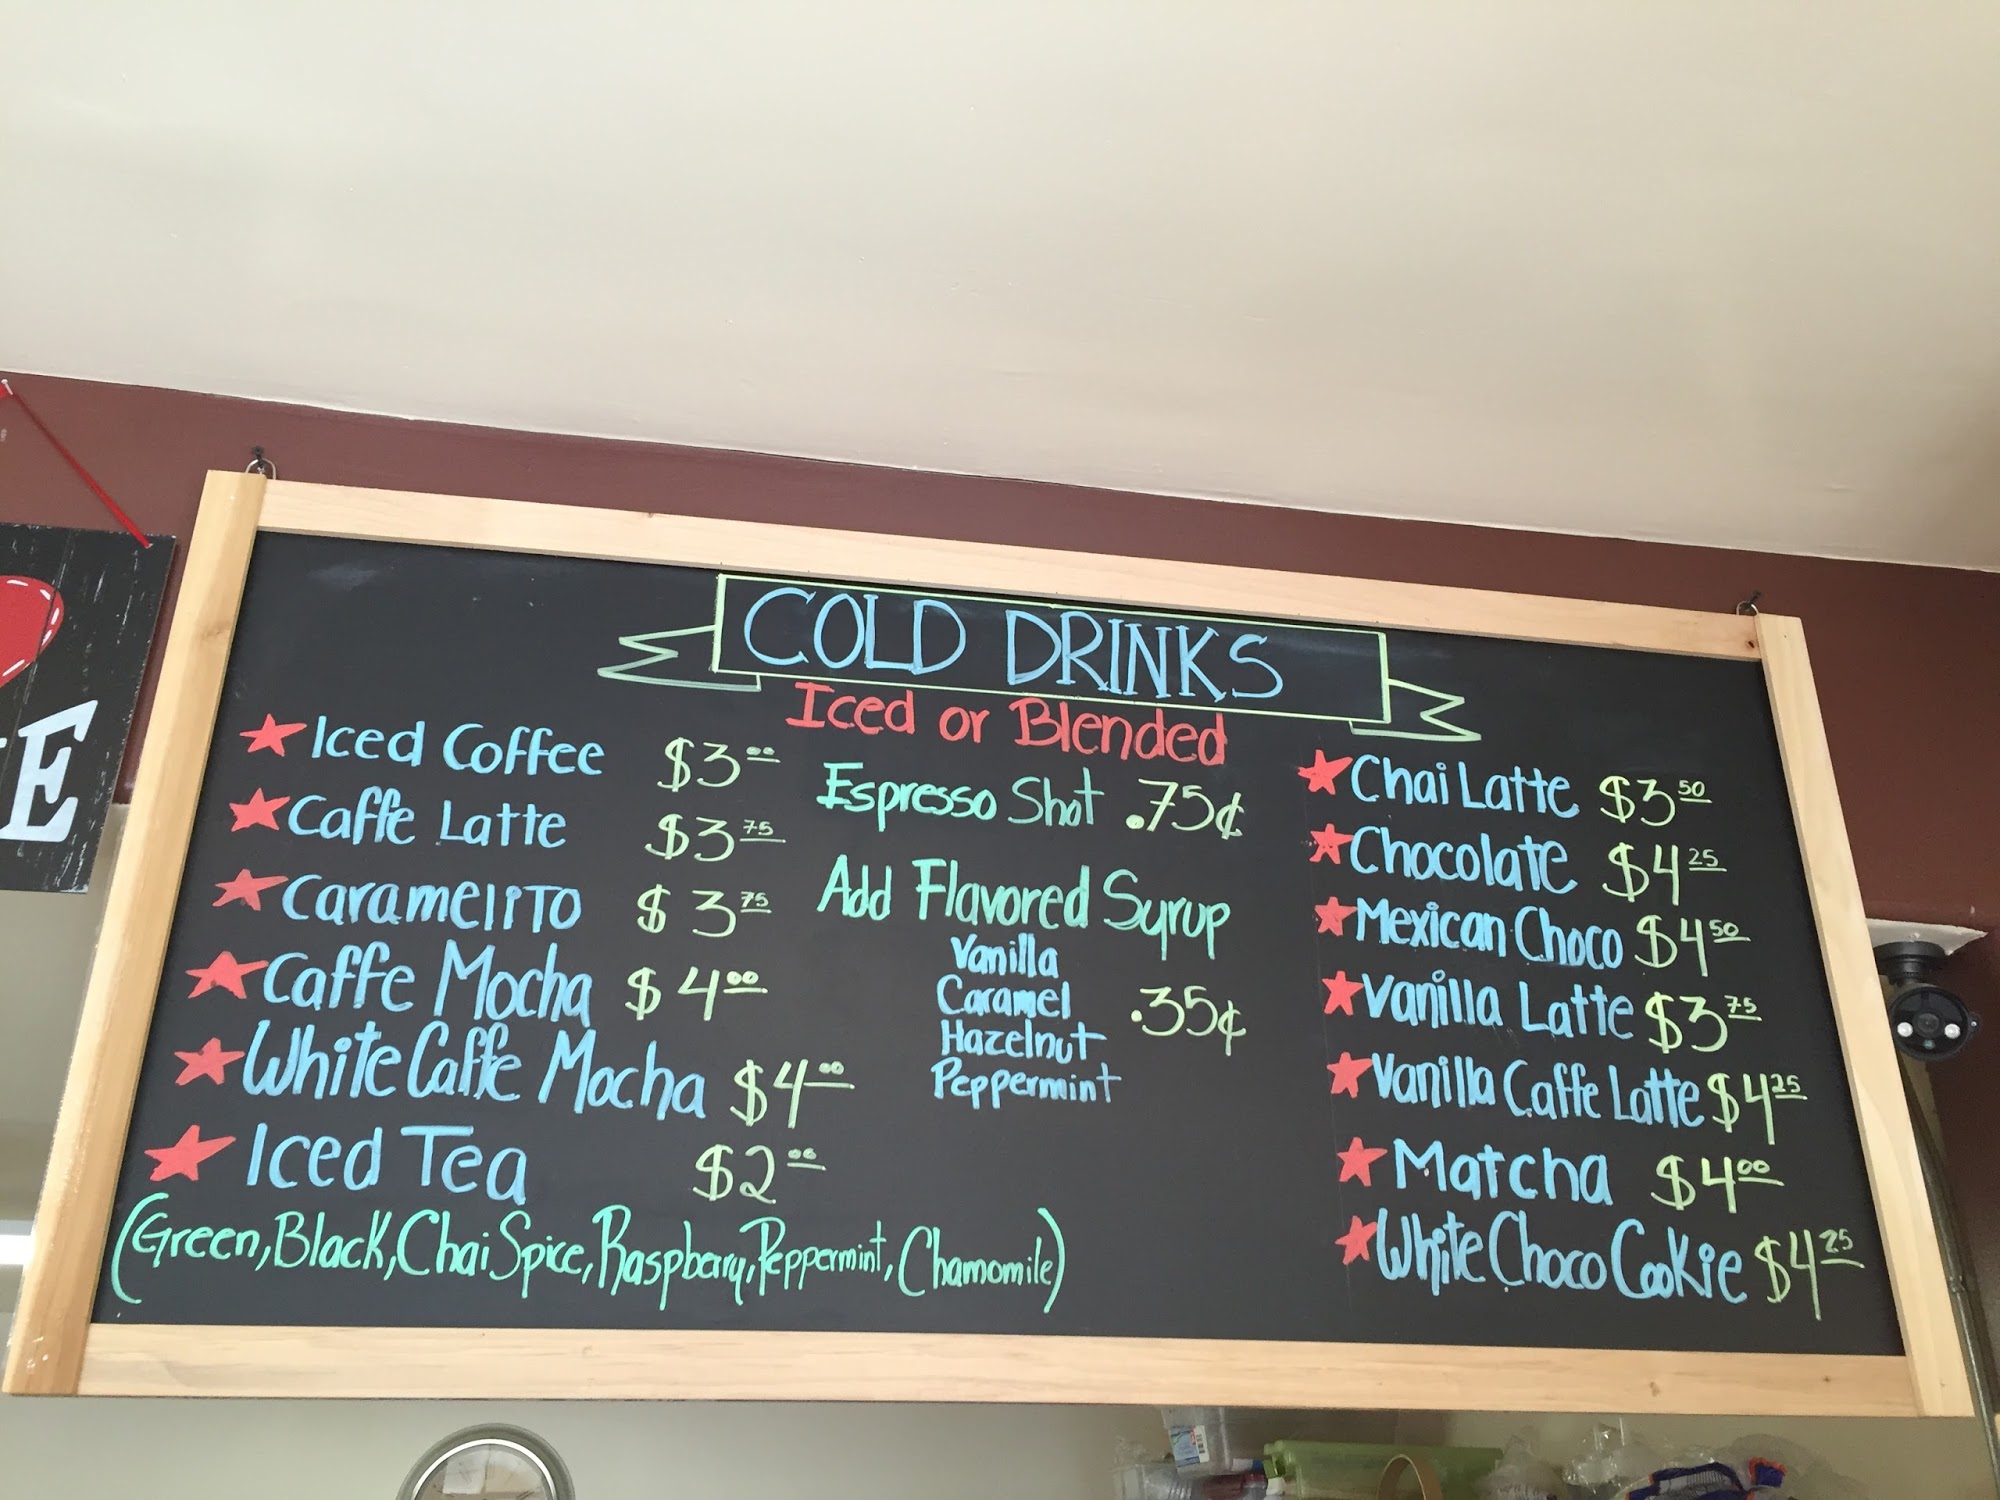 E
COLD DRINKS
Iced or Blended
Iced Coffee $3.00
Caffe Latte $3.75
Caramelito $3.75
Caffe Mocha $4.00
White Caffe Mocha $4.00
Iced Tea $2.00
(Green, Black, Chai Spice, Raspberry, Peppermint, Chamomile)
Espresso Shot .75¢
Add Flavored Syrup
Vanilla
Caramel .35¢
Hazelnut
Peppermint
Chai Latte $3.50
Chocolate $4.25
Mexican Choco $4.50
Vanilla Latte $3.75
Vanilla Caffe Latte $4.25
Matcha $4.00
White Choco Cookie $4.25